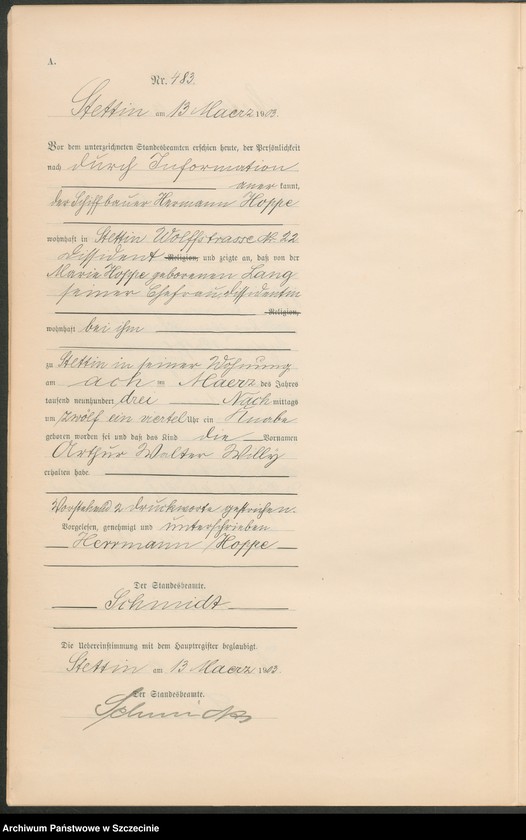 A.
Nr. 483.
Stettin am 13 Maerz 1903.
Vor dem unterzeichneten Standesbeamten erschien heute, der Persönlichkeit
nach durch Information
aner kannt,
der Schiffbauer Hermann Hoppe
wohnhaft in Stettin Wolffstrasse Nr. 22
Dissident Religion, und zeigte an, daß von der
Marie Hoppe geborenen Lang
seiner Ehefrau, Dissidentin
Religion,
wohnhaft bei ihm
zu Stettin in seiner Wohnung
am ach ten Maerz des Jahres
tausend neunhundert drei Nach mittags
um zwölf ein viertel Uhr ein Knabe
geboren worden sei und daß das Kind die Vornamen
Arthur Walter Willy
erhalten habe.
Vorstehend 2 Druckworte gestrichen.
Vorgelesen, genehmigt und unterschrieben
Herrmann Hoppe
Der Standesbeamte.
Schmidt
Die Uebereinstimmung mit dem Hauptregister beglaubigt.
Stettin am 13 Maerz 1903.
Der Standesbeamte.
Archiwum Państwowe w Szczecinie